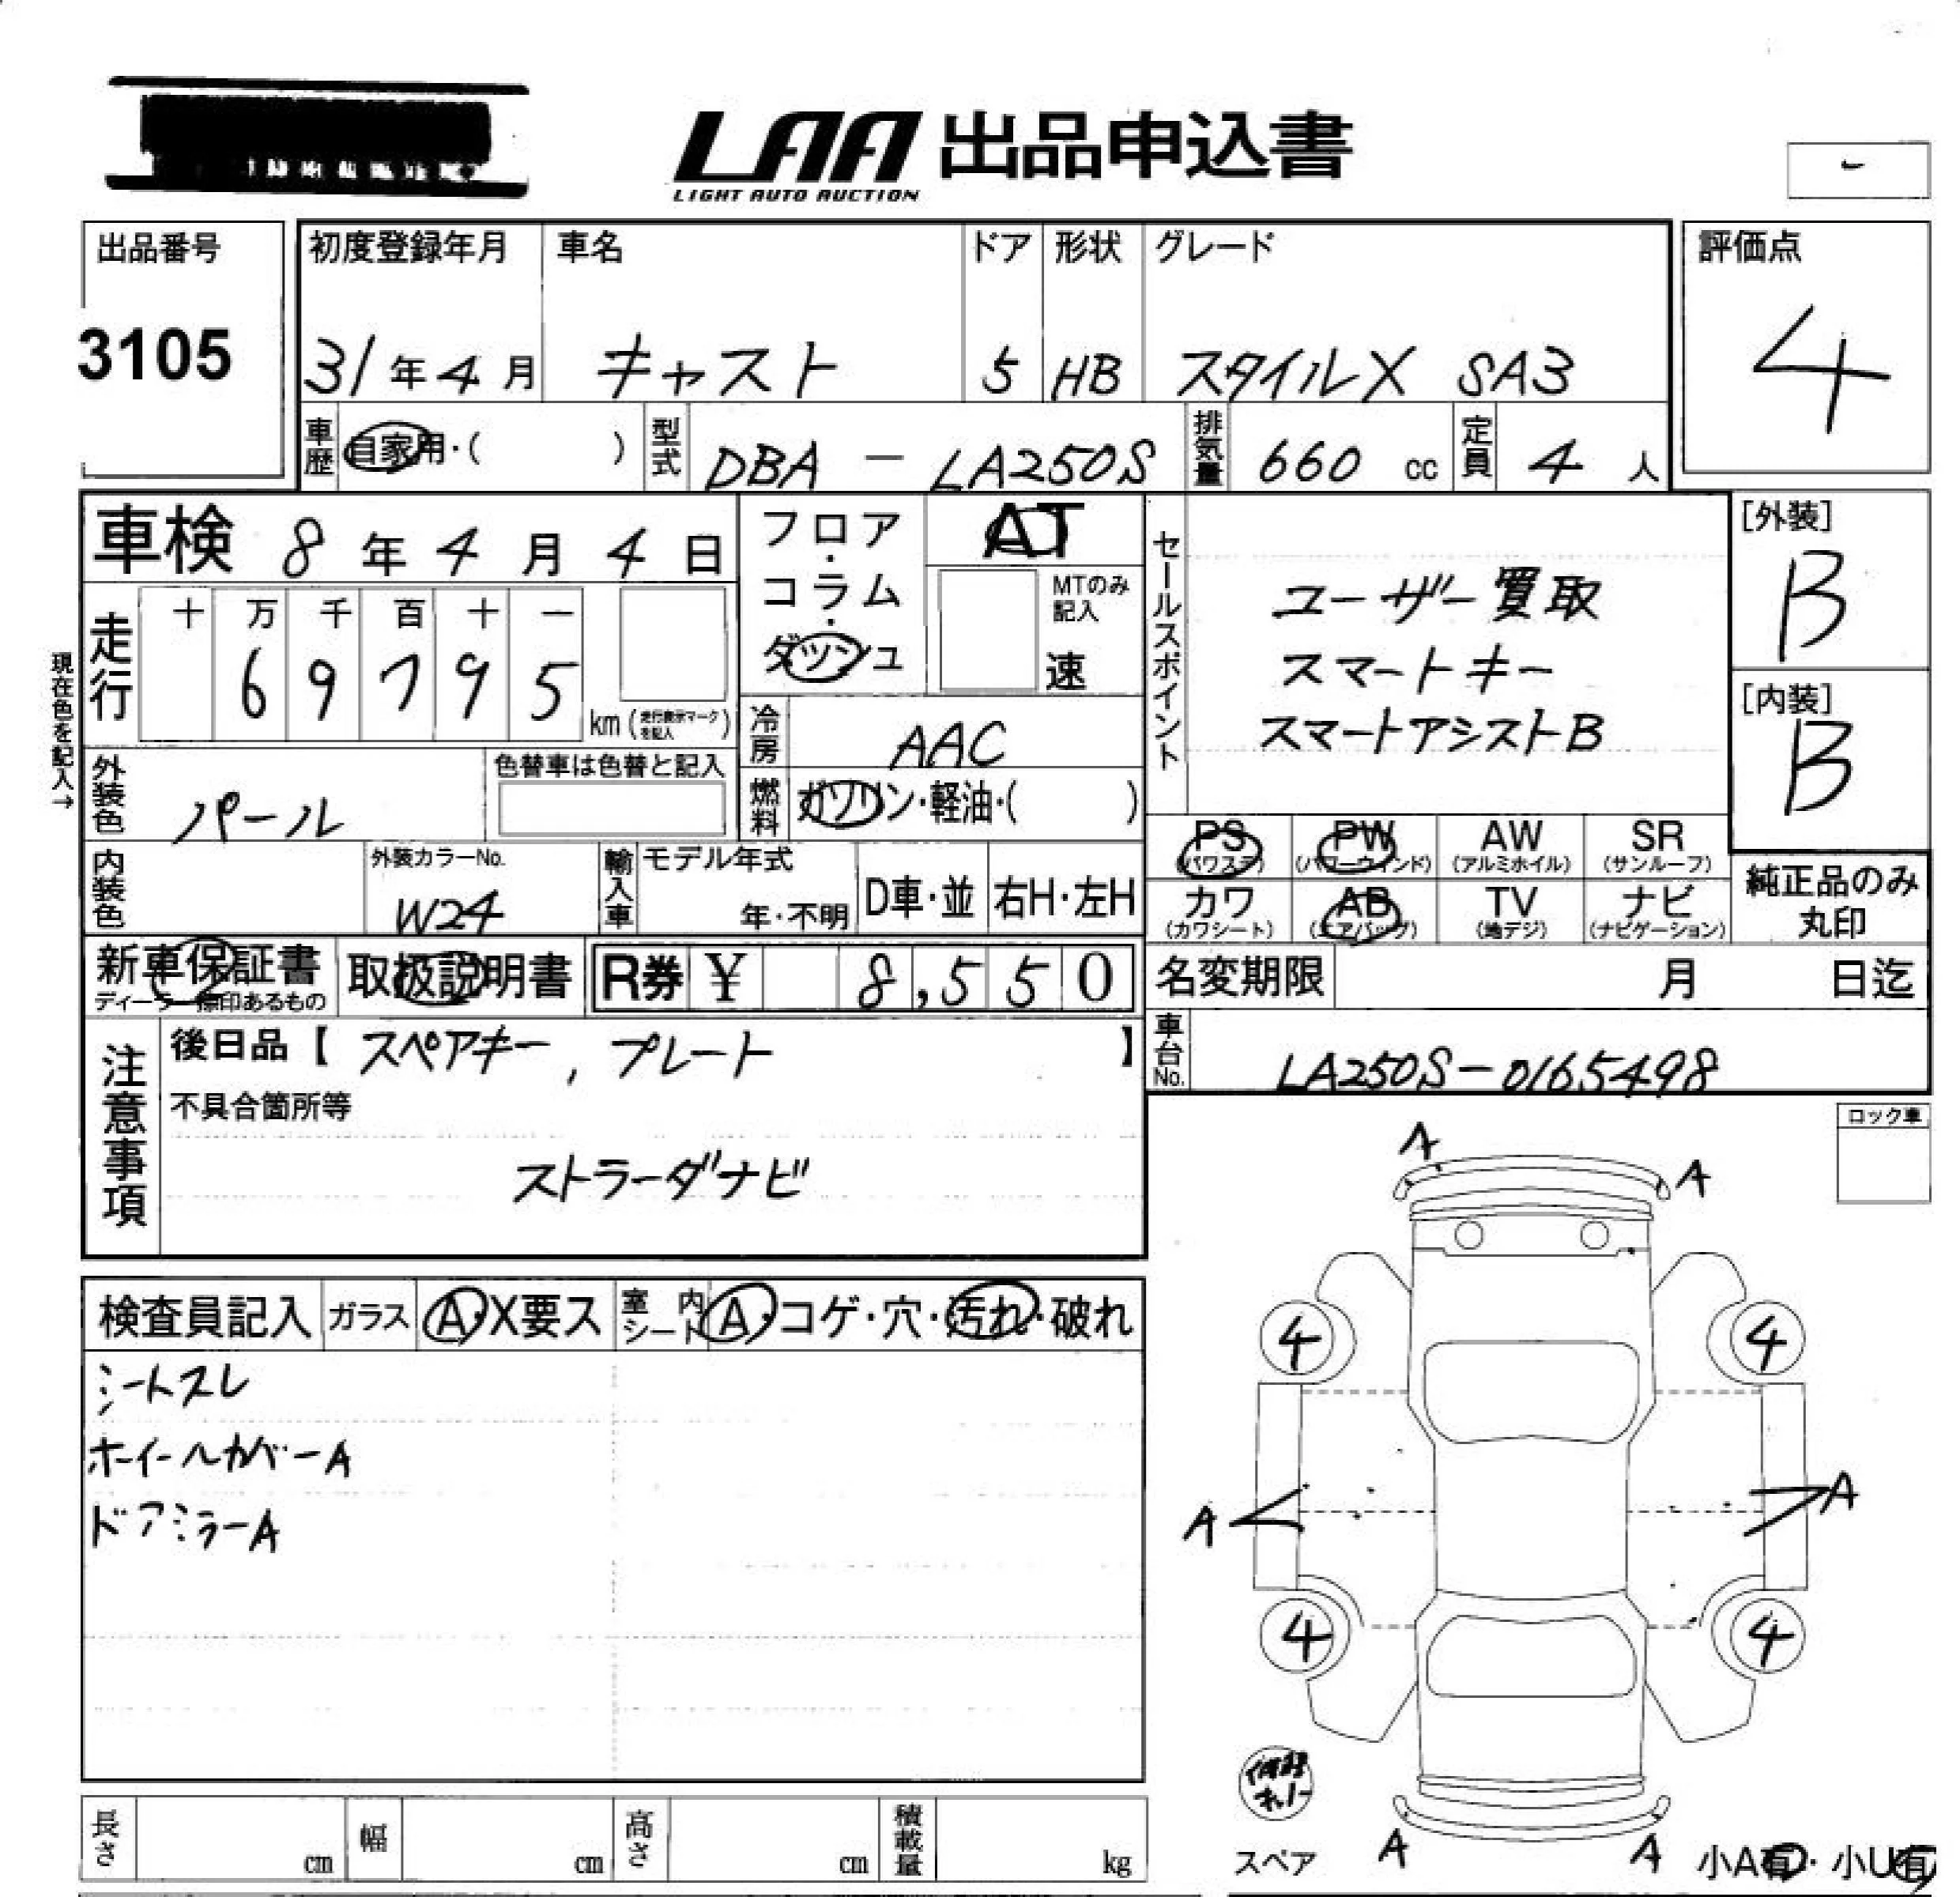 LAA 出品申込書
LIGHT AUTO AUCTION
-
出品番号
3105
初度登録年月 車名 ドア 形状 グレード
31年4月 キャスト 5 HB スタイルX SA3
評価点
4
車歴 自家用・( ) 型式 DBA - LA250S 排気量 660 cc 定員 4 人
車検 8年4月4日
フロア・コラム・ダッシュ
AT
MTのみ記入
速
セールスポイント
ユーザー買取
スマートキー
スマートアシストB
[外装]
B
[内装]
B
現在色を記入→
走行 十 万 千 百 十 一
69795 km (走行表示マークを記入)
冷房 AAC
燃料 ガソリン・軽油・( )
外装色 パール
色替車は色替と記入
内装色
外装カラーNo.
W24
輸入車 モデル年式
年・不明 D車・並 右H・左H
PS (パワステ) PW (パワーウィンド) AW (アルミホイル) SR (サンルーフ)
カワ (カワシート) AB (エアバッグ) TV (地デジ) ナビ (ナビゲーション)
純正品のみ
丸印
新車保証書
ディーラー捺印あるもの
取扱説明書
R券 ¥ 8,550
名変期限 月 日迄
車台No. LA250S-0165498
注意事項
後日品【スペアキー, プレート】
不具合箇所等
ストラーダナビ
ロック車
検査員記入 ガラス A・X要ス 室内シート A・コゲ・穴・汚れ・破れ
シートスレ
ホイールカバーA
ドアミラーA
A
A
4 4
A A
4 4
修理キット
スペア
A A
小A有・小U有
長さ cm 幅 cm 高さ cm 積載量 kg